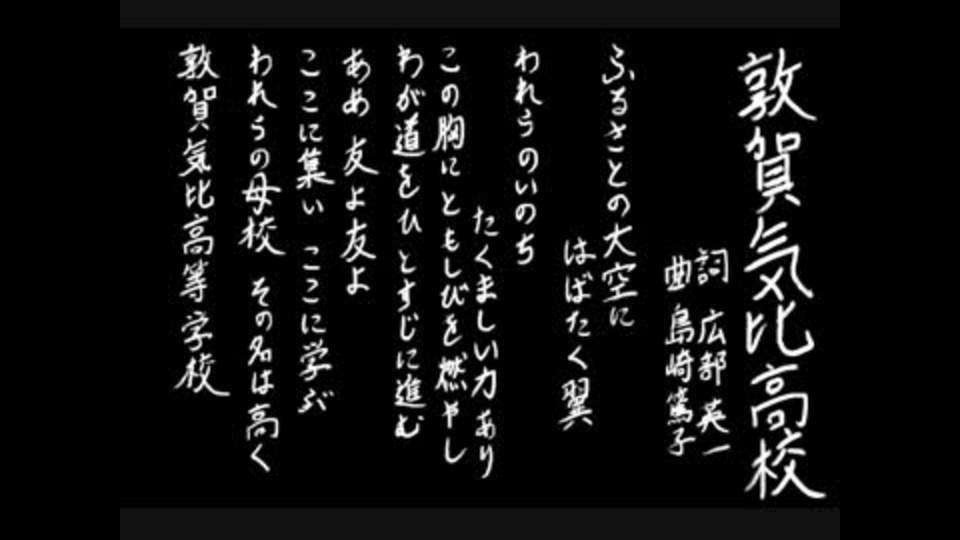 敦賀気比高校
詞 広部英一
曲 島崎篤子
ふるさとの大空に
はばたく翼
われらのいのち
たくましい力あり
この胸に ともしびを燃やし
わが道を ひとすじに進む
ああ 友よ友よ
ここに集い ここに学ぶ
われらの母校 その名は高く
敦賀気比高等学校